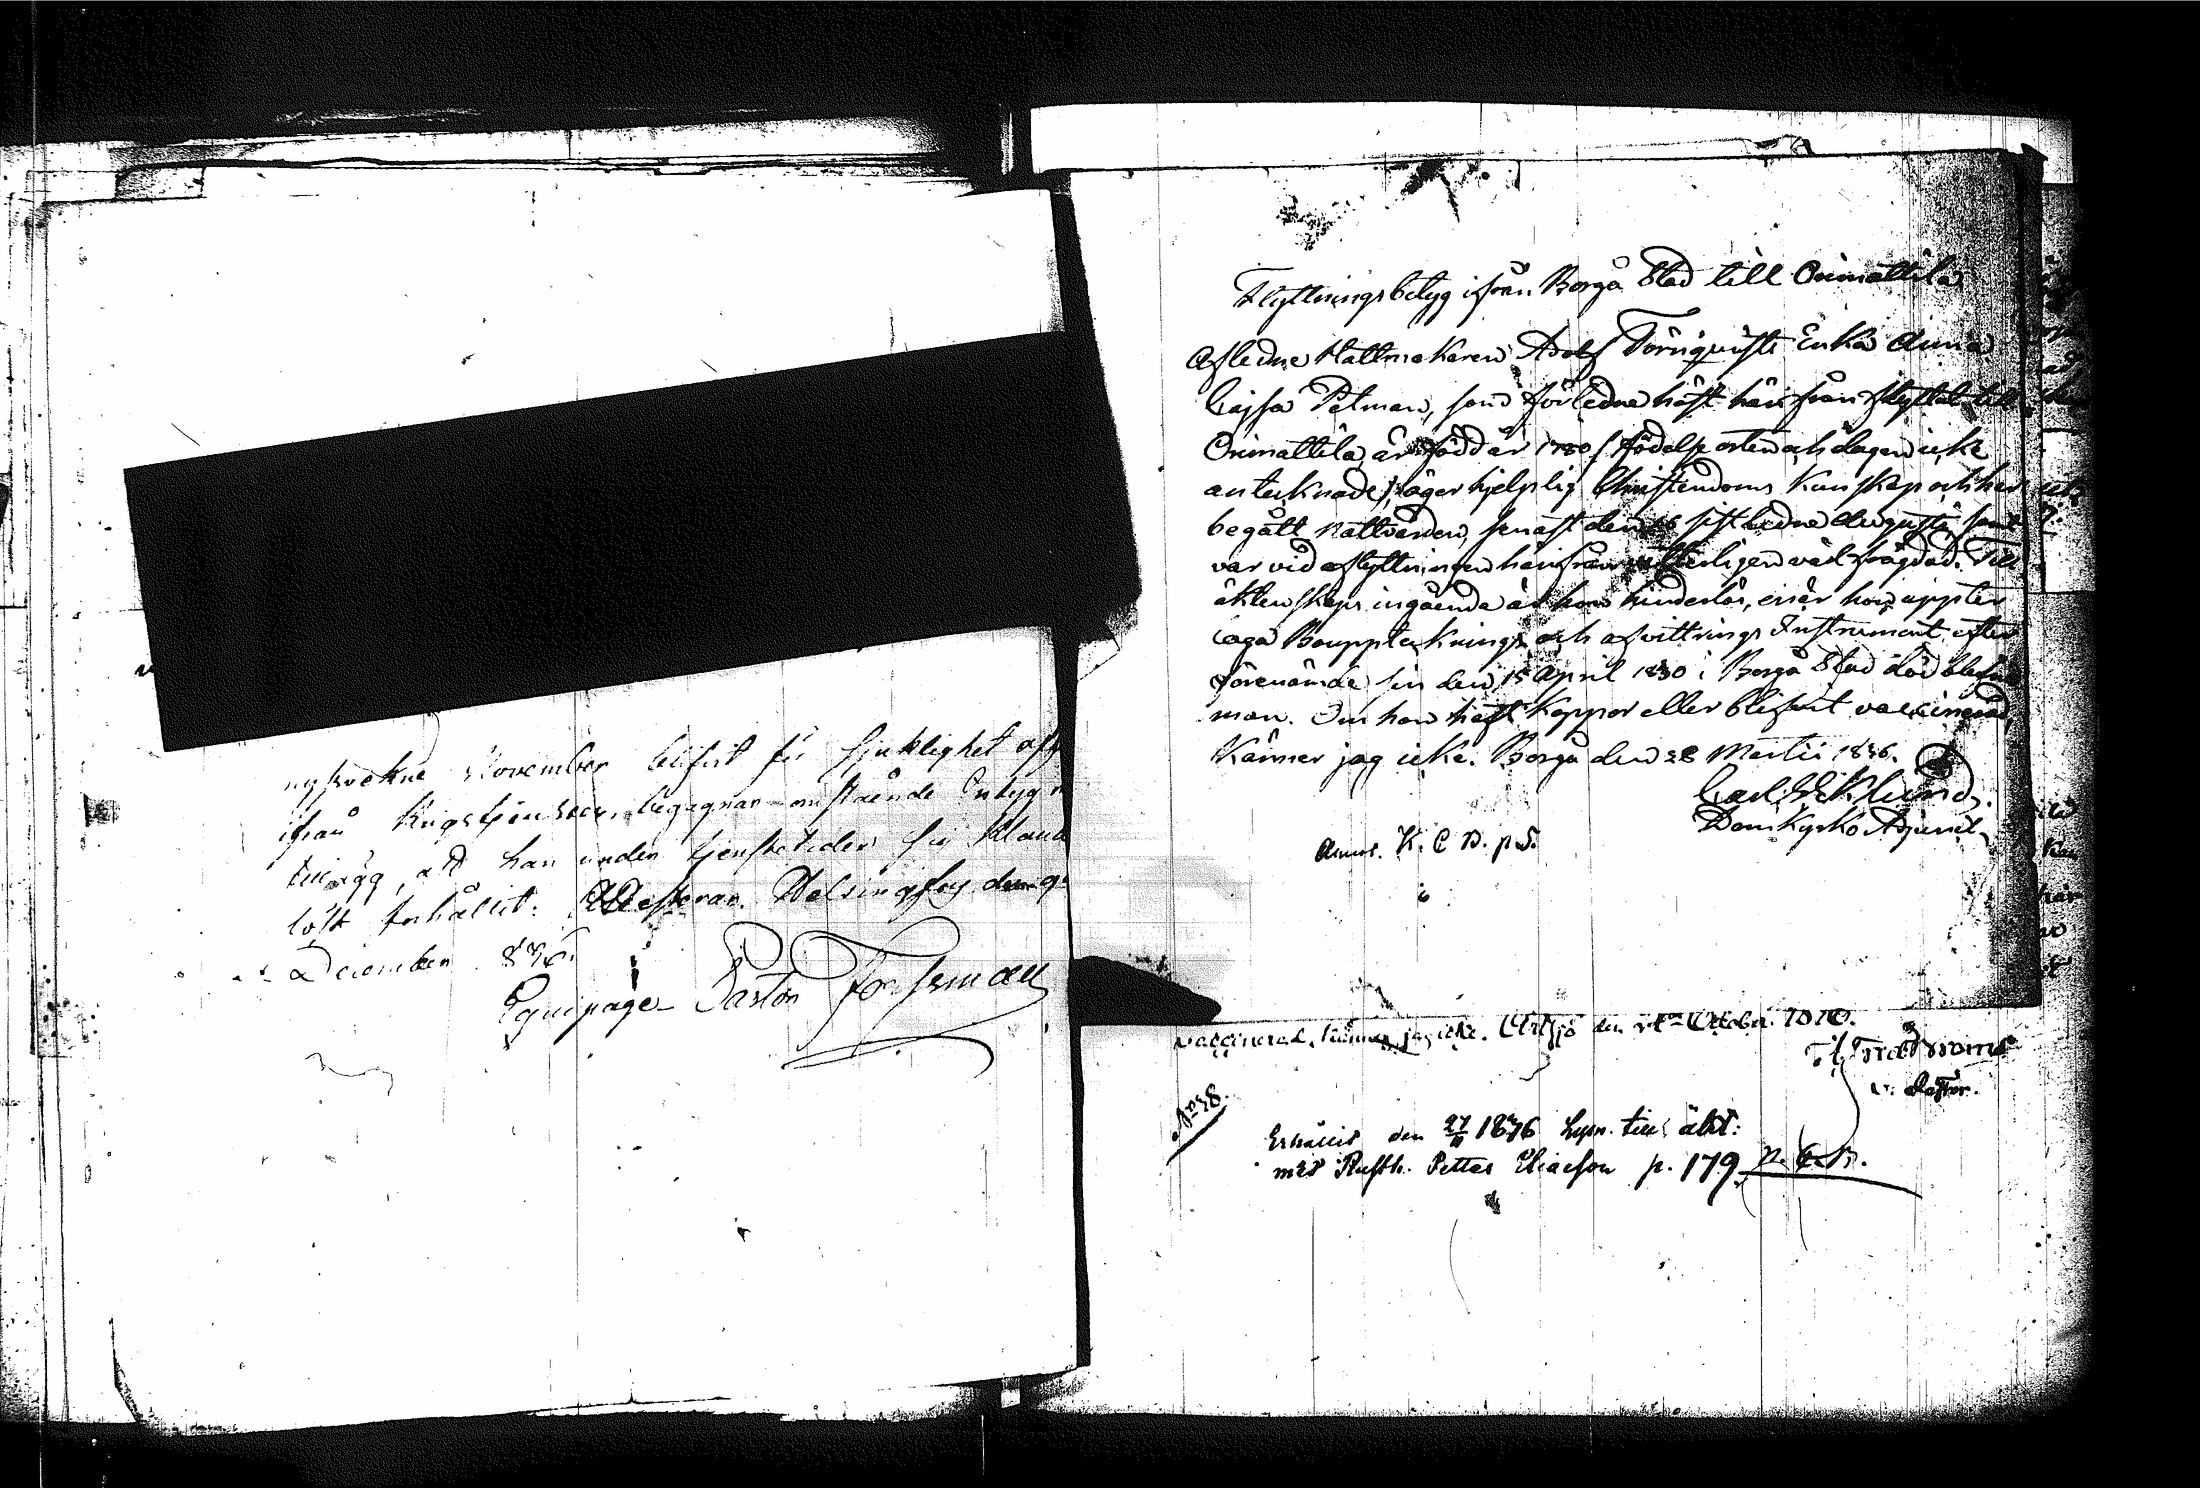 nyssvekne November blifvit för sjuklighet afsk
ifrån Krigstjensten, begagnar omstående Intyg
tillägg, att han under tjenstetiden sig klander
löst förhållit. Attesterar. Helsingfors den 9
December 1836.
Equipage Pastor Forssman
Flyttningsbetyg ifrån Borgå Stad till Orimattila
Afledne Hattmakaren Adolf Törnquists Enka Anna
Cajsa Petman, som förledne höst härifrån flyttat till
Orimattila, är född år 1780 (födelse orten och dagen icke
antecknade), äger hjelplig Christendoms kunskap och har
begått nattvarden senast den 26 sistledne Augusti, samt
var vid afflyttningen härifrån sitterligen väl frägdad. Till
äktenskaps ingående är hon hinderlös, enär hon uppter
laga Bouppteknings och afvittrings Instrument efter
förenämde sin den 15 April 1830 i Borgå Stad död blefne
man. Om hon haft koppor eller blifvit vaccinerad,
känner jag icke. Borgå den 28 Martii 1836.
Carl Eklund.
Domkyrko Adjunct.
Annot. K. C B. p. 5.
vaccinerad, känner jag icke. Artsjö den Oktober
N:o 28.
Erhållit den 27/11 1836 Lysn. till äkt:
med Rusth. Petter Eliaeson p. 179 n. C. B.